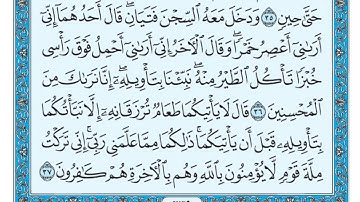 حَتَّىٰ حِينٍ ۝٣٥ وَدَخَلَ مَعَهُ ٱلسِّجْنَ فَتَيَانِ ۖ قَالَ أَحَدُهُمَآ إِنِّىٓ
أَرَىٰنِىٓ أَعْصِرُ خَمْرًا ۖ وَقَالَ ٱلْـَٔاخَرُ إِنِّىٓ أَرَىٰنِىٓ أَحْمِلُ فَوْقَ رَأْسِى
خُبْزًا تَأْكُلُ ٱلطَّيْرُ مِنْهُ ۖ نَبِّئْنَا بِتَأْوِيلِهِۦٓ ۖ إِنَّا نَرَىٰكَ مِنَ
ٱلْمُحْسِنِينَ ۝٣٦ قَالَ لَا يَأْتِيكُمَا طَعَامٌ تُرْزَقَانِهِۦٓ إِلَّا نَبَّأْتُكُمَا
بِتَأْوِيلِهِۦ قَبْلَ أَن يَأْتِيَكُمَا ۚ ذَٰلِكُمَا مِمَّا عَلَّمَنِى رَبِّىٓ ۚ إِنِّى تَرَكْتُ
مِلَّةَ قَوْمٍ لَّا يُؤْمِنُونَ بِٱللَّهِ وَهُم بِٱلْـَٔاخِرَةِ هُمْ كَـٰفِرُونَ ۝٣٧